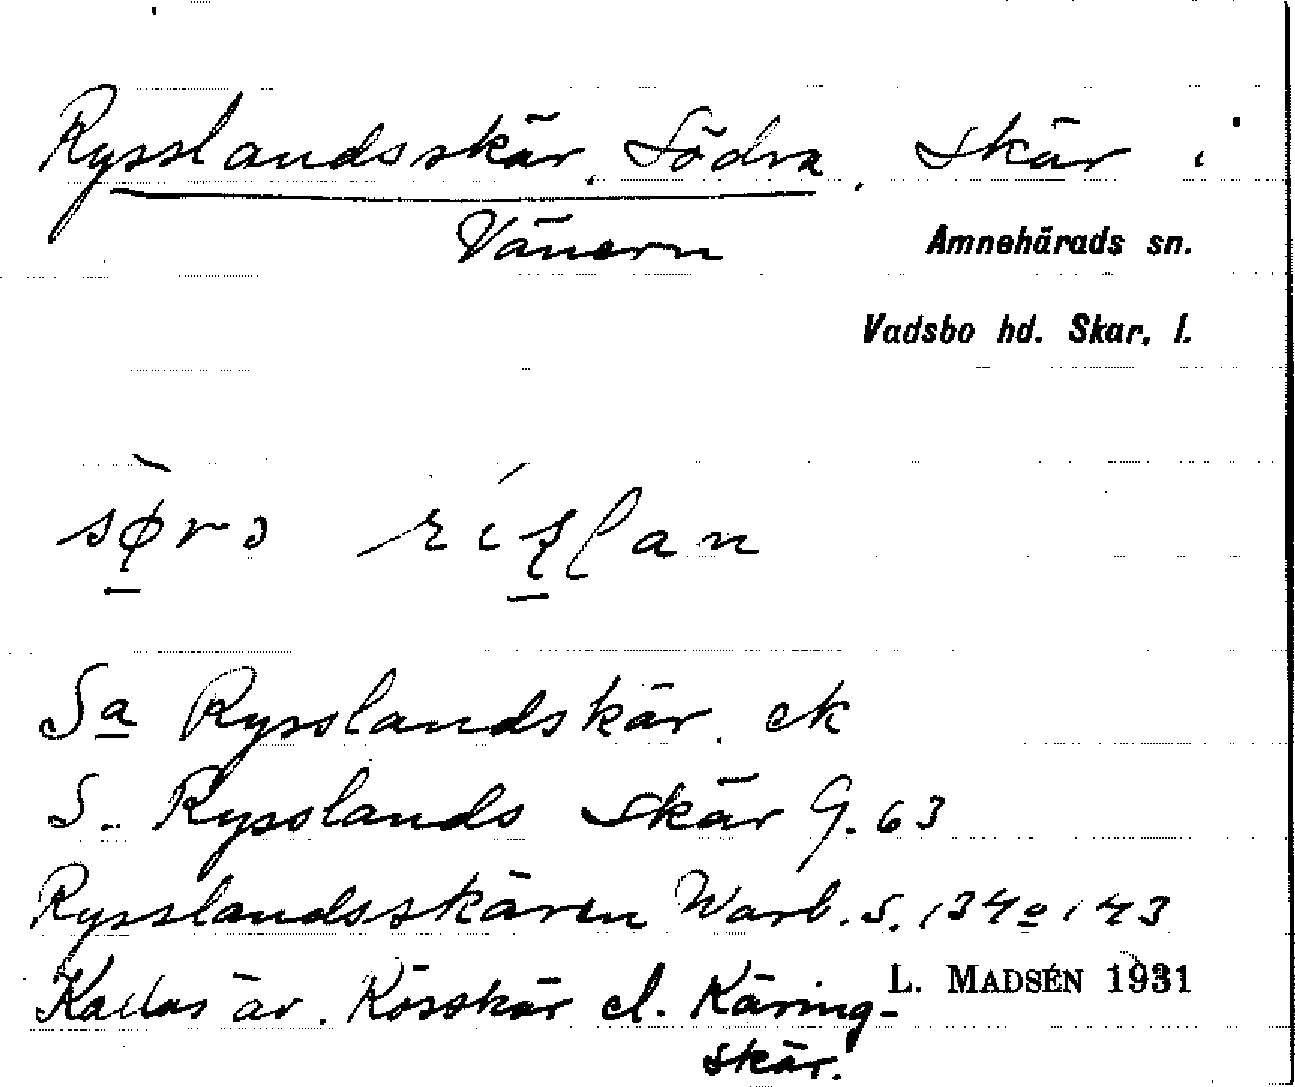 Rysslandsskär, Södra, Skär i
Vänern
Amnehärads sn.
Vadsbo hd. Skar. l.
Sa Rysslandskär. ek
S. Rysslands Skär G. 63
Rysslandsskären Warb. s. 134 o 143
Kallas äv. Kösskär el. Käring-
skär.
L. MADSÉN 1931